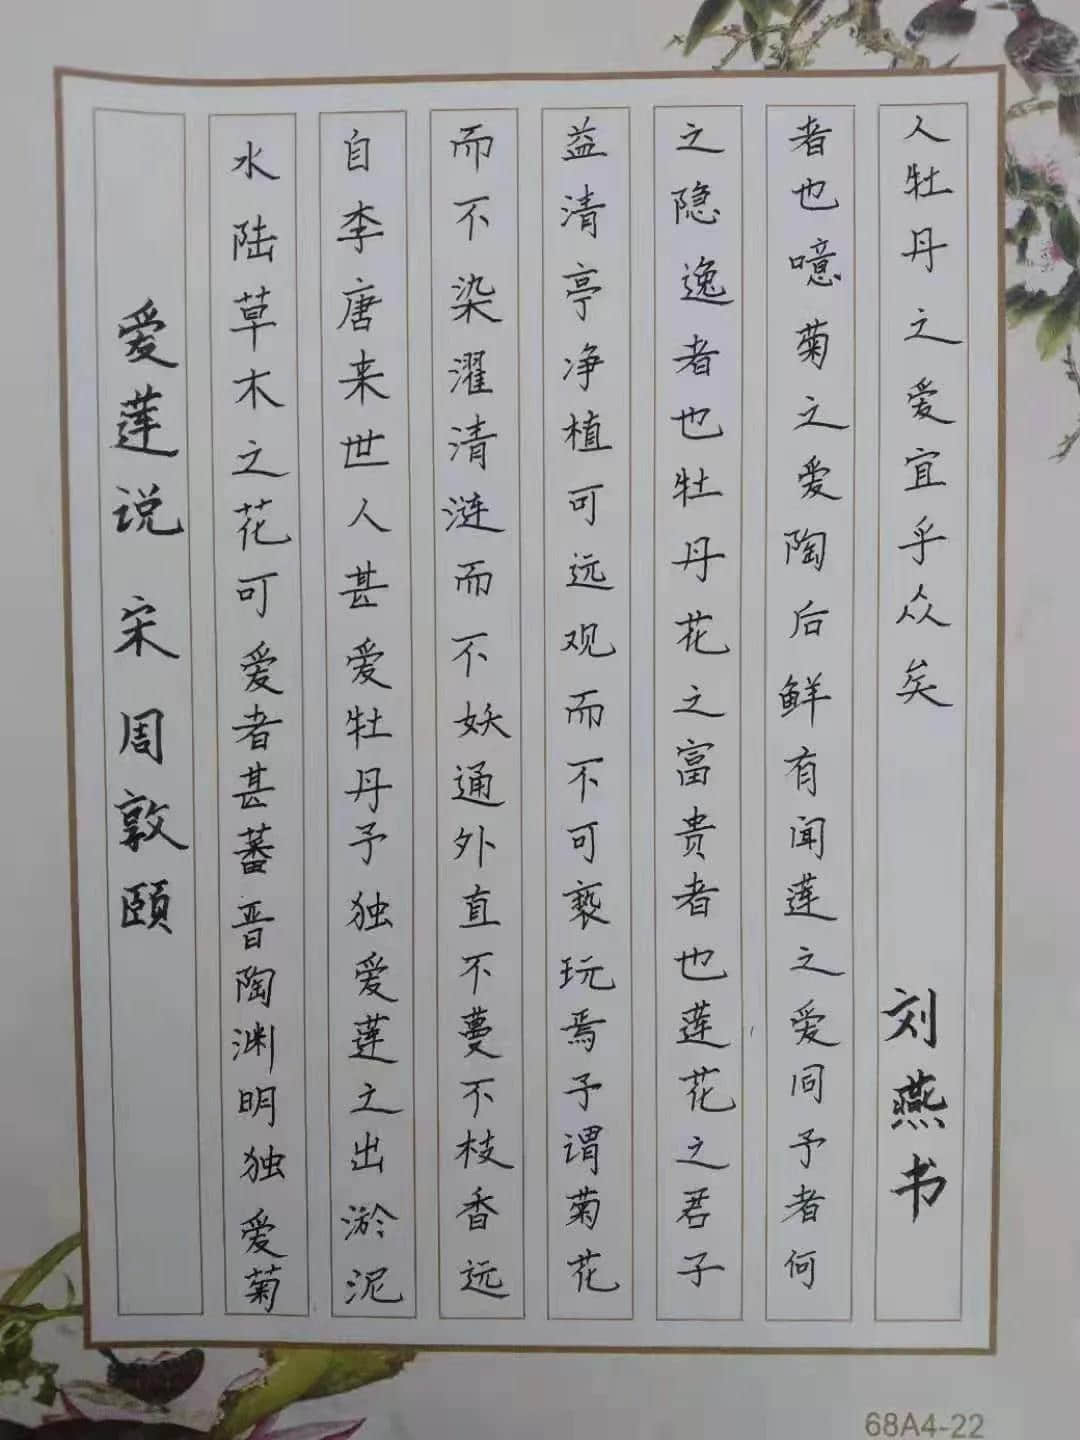 爱莲说 宋 周敦颐
水陆草木之花可爱者甚蕃晋陶渊明独爱菊
自李唐来世人甚爱牡丹予独爱莲之出淤泥
而不染濯清涟而不妖通外直不蔓不枝香远
益清亭净植可远观而不可亵玩焉予谓菊花
之隐逸者也牡丹花之富贵者也莲花之君子
者也噫菊之爱陶后鲜有闻莲之爱同予者何
人牡丹之爱宜乎众矣
刘燕书
68A4-22